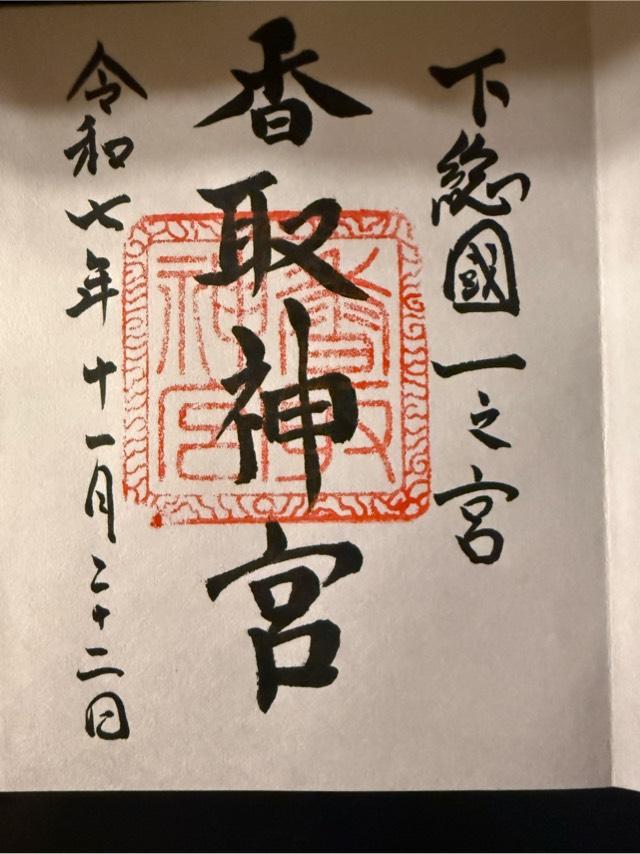 下総國一之宮
香取神宮
令和七年十一月二十二日
香取
神宮